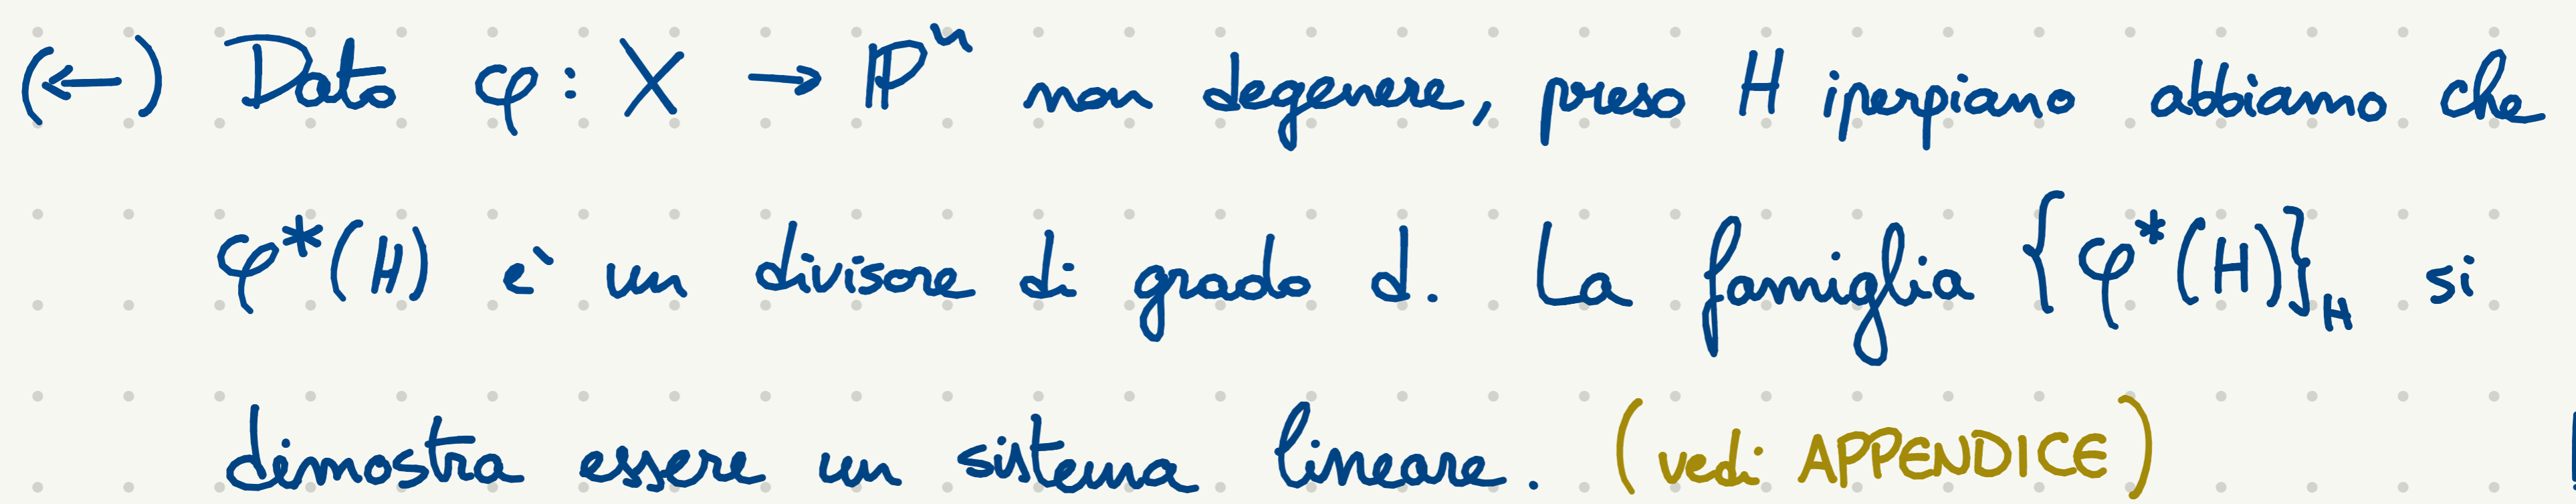 (←) Dato φ: X → ℙⁿ non degenere, preso H iperpiano abbiamo che
φ*(H) e` un divisore di grado d. La famiglia {φ*(H)}_H si
dimostra essere un sistema lineare. (vedi APPENDICE)